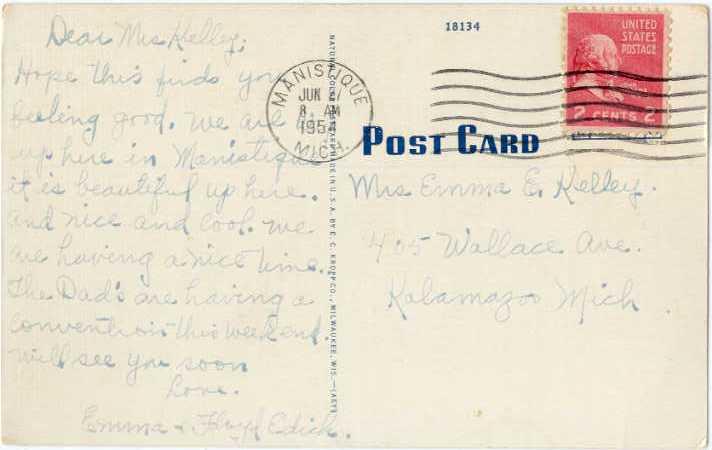 Dear Mrs Kelley,
Hope this finds you
feeling good. we are
up here in Manistique
it is beautiful up here.
and nice and cool. we
are having a nice time.
The Dad's are having a
convention this week end
will see you soon
Love.
Emma & Floyd Edich.
NATURAL COLOR POST CARD MADE IN U.S.A. BY E. C. KROPP CO., MILWAUKEE, WIS.—(ART)
18134
MANISTIQUE
JUN
8 AM
195
MICH.
UNITED
STATES
POSTAGE
2 CENTS 2
POST CARD
Mrs Emma E. Kelley.
405 Wallace Ave.
Kalamazoo Mich